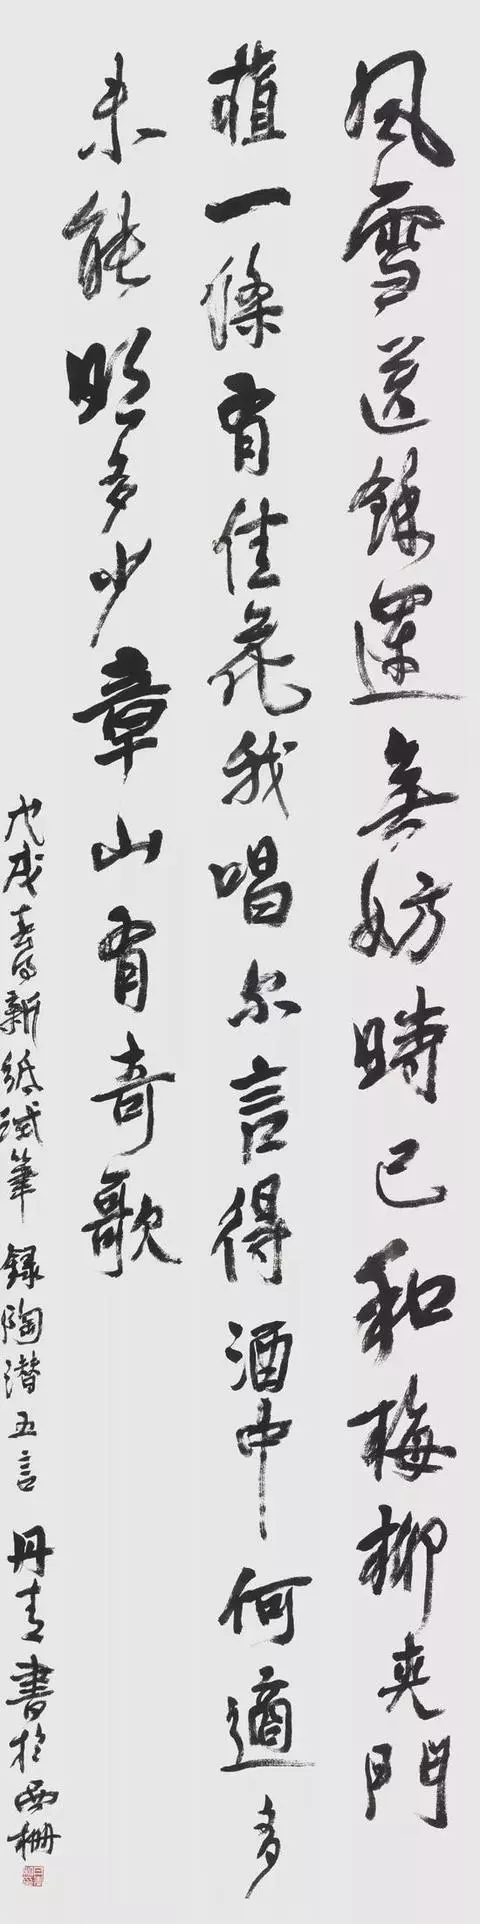 風雪送餘運無妨時已和梅柳夾門
植一條有佳花我唱尔言得酒中何適多
未能明多少章山有奇歌
戊戌春日新紙試筆 録陶潜五言 丹青書於西柵